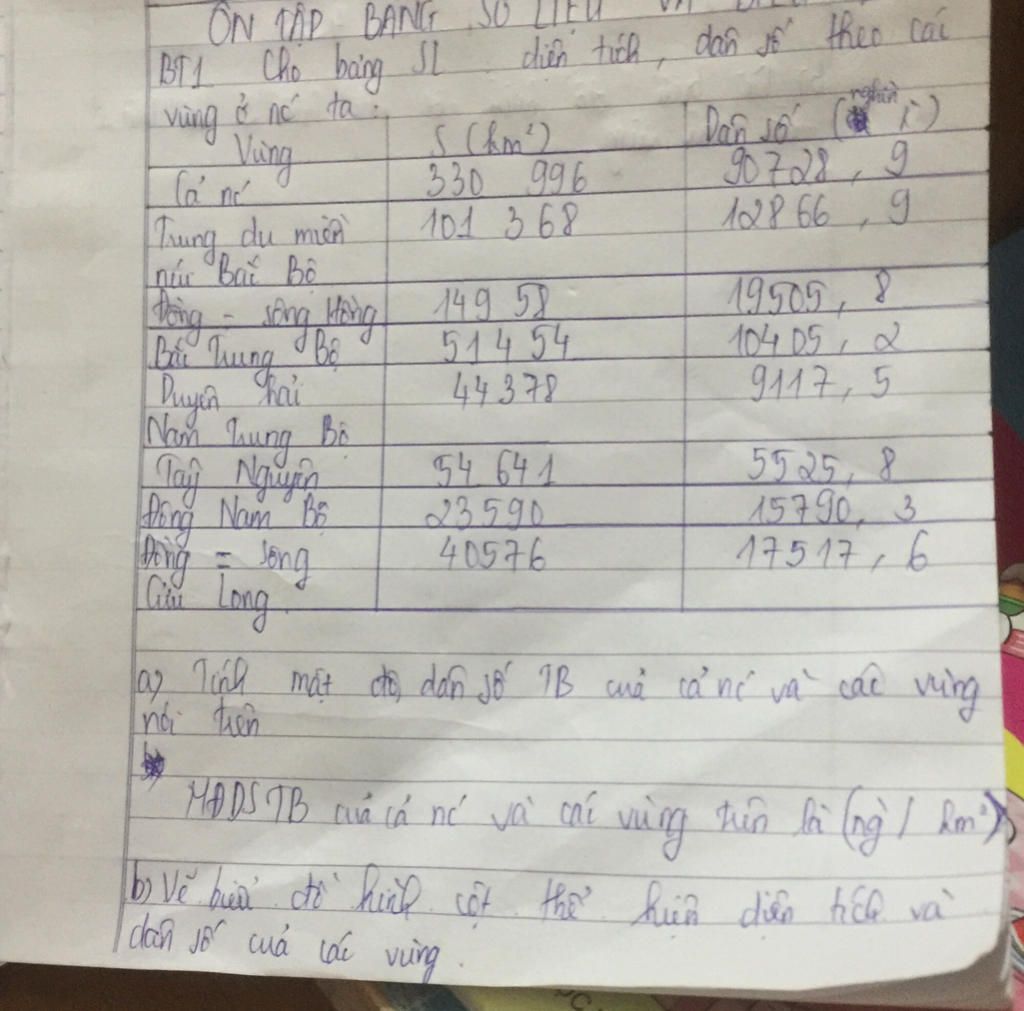 ÔN TẬP BẢNG SỐ LIỆU VÀ
BT1 Cho bảng SL diện tích, dân số theo các
vùng ở nc ta :
Vùng S (km²) Dân số (nghìn )
Cả nc 330 996 90728, 9
Trung du miền 101 368 12866, 9
núi Bắc Bộ
Đồng = sông Hồng 149 58 19505, 8
Bắc Trung Bộ 51454 10405, 2
Duyên hải 44378 9117, 5
Nam Trung Bộ
Tây Nguyên 54 641 5525, 8
Đông Nam Bộ 23590 15790, 3
Đồng = sông 40576 17517, 6
Cửu Long
a) Tính mật độ dân số TB của cả nc và các vùng
nói trên
MĐDSTB của cả nc và các vùng trên là (ng / km²)
b) Vẽ biểu đồ hình cột thể hiện diện tích và
dân số của các vùng.